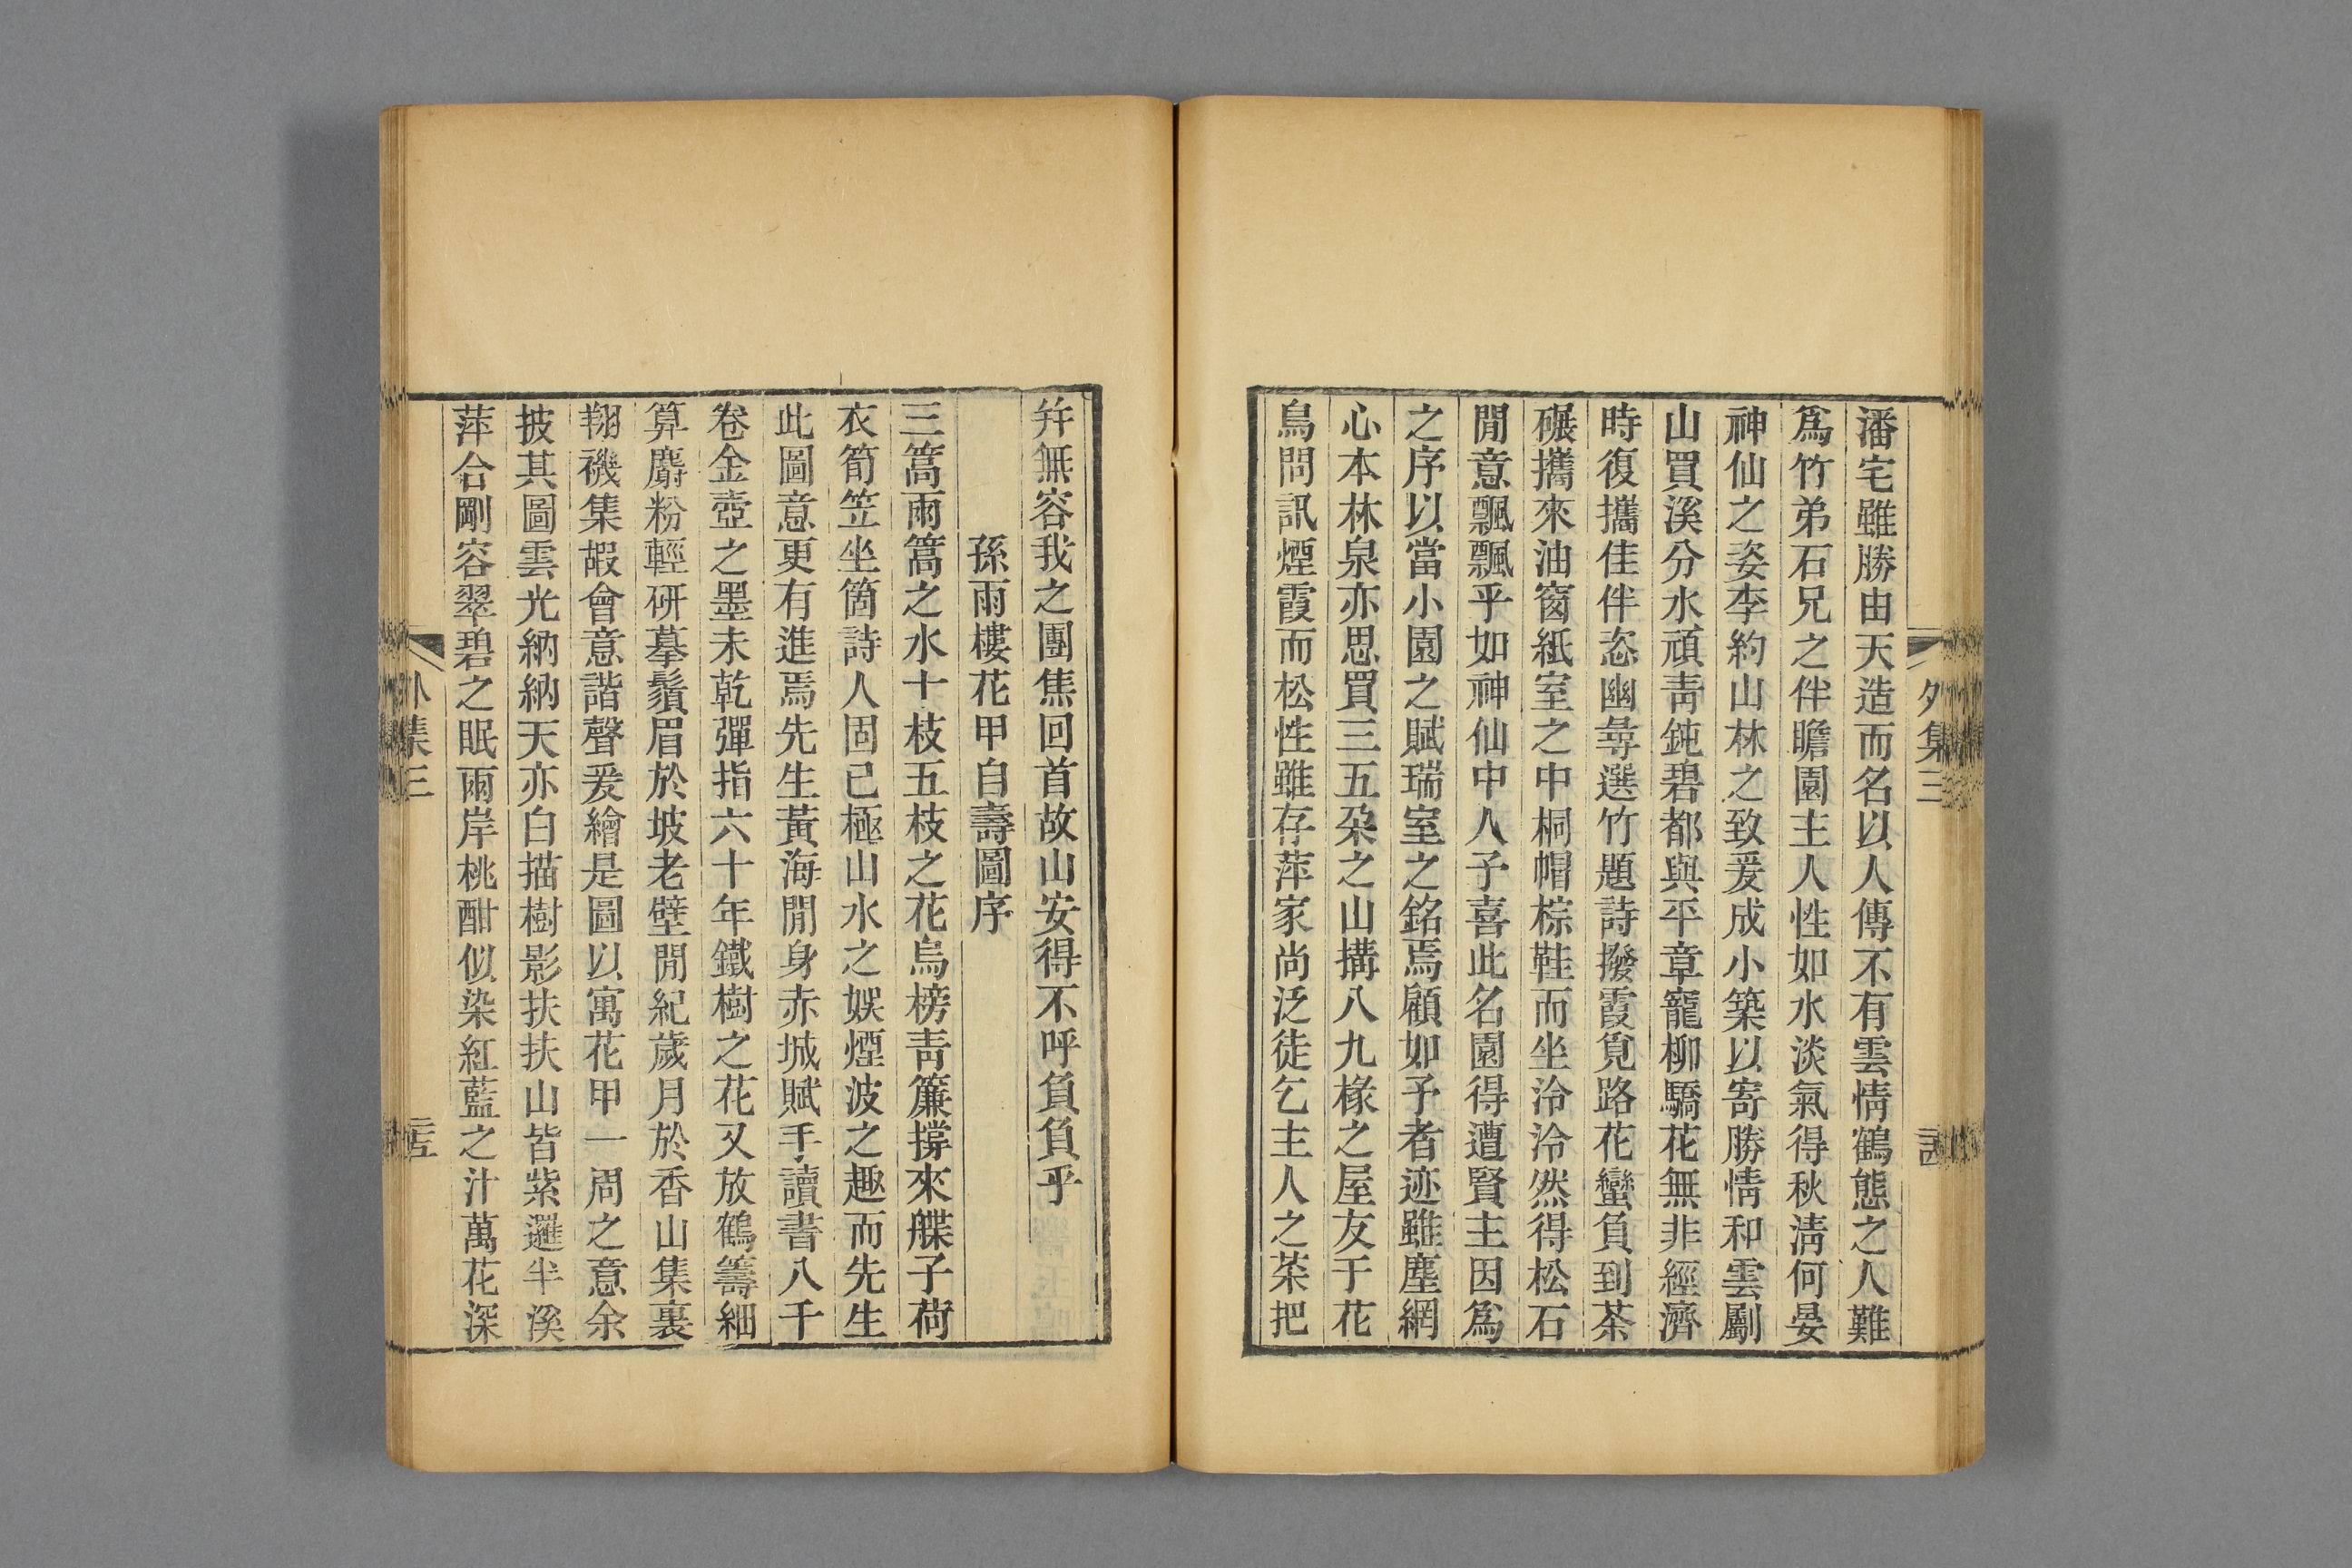 外集三
潘宅雖勝由天造而名以人傳不有雲情鶴態之人難
爲竹弟石兄之伴瞻園主人性如水淡氣得秋淸何晏
神仙之姿李約山林之致爰成小築以寄勝情和雲劚
山買溪分水頑靑鈍碧都與平章寵柳驕花無非經濟
時復攜佳伴恣幽尋選竹題詩撥霞覓路花蠻負到茶
碾攜來油窗紙室之中桐帽棕鞋而坐泠泠然得松石
閒意飄飄乎如神仙中人予喜此名園得遭賢主因爲
之序以當小園之賦瑞室之銘焉顧如予者迹雖塵網
心本林泉亦思買三五朶之山搆八九椽之屋友于花
鳥問訊煙霞而松性雖存萍家尚泛徒乞主人之茶把
幷無容我之團焦回首故山安得不呼負負乎
孫雨樓花甲自壽圖序
三篙雨篙之水十枝五枝之花烏榜靑簾撐來艓子荷
衣筍笠坐箇詩人固已極山水之娛煙波之趣而先生
此圖意更有進焉先生黃海閒身赤城賦手讀書八千
卷金壺之墨未乾彈指六十年鐵樹之花又放鶴籌細
算麝粉輕硏摹鬚眉於坡老壁閒紀歲月於香山集裏
翔禨集嘏會意諧聲爰繪是圖以寓花甲一周之意余
披其圖雲光納納天亦白描樹影扶扶山皆紫邏半溪
萍合剛容翠碧之眠兩岸桃酣似染紅藍之汁萬花深
外集三